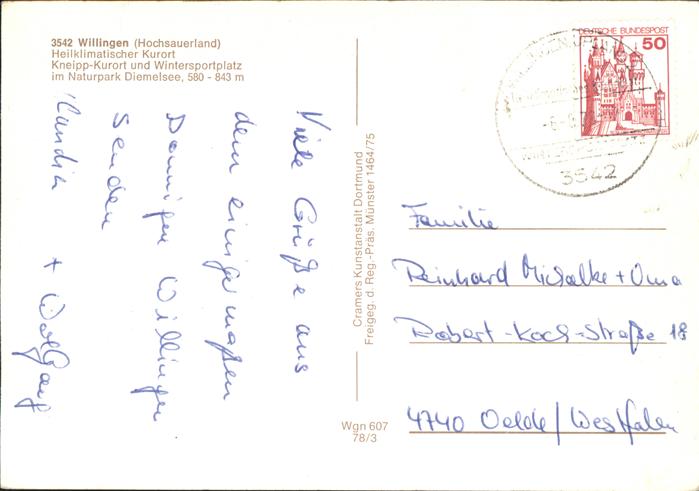 3542 Willingen (Hochsauerland)
Heilklimatischer Kurort
Kneipp-Kurort und Wintersportplatz
im Naturpark Diemelsee, 580 - 843 m
Viele Grüße aus
dem einigermaßen
Willingen
senden
Claudia + Wolfgang
Cramers Kunstanstalt Dortmund
Freigeg. d. Reg.-Präs. Münster 1464/75
Wgn 607
78/3
DEUTSCHE BUNDESPOST
50
3542
Familie
Reinhard Michalke + Oma
Robert-Koch-Straße 18
4740 Oelde/Westfalen